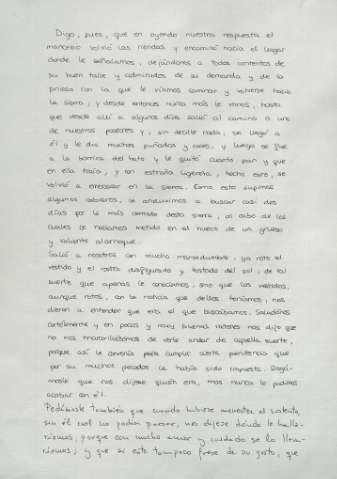 Digo, pues, que en oyendo nuestra respuesta el
mancebo volvió las riendas y encaminó hacia el lugar
donde le señalamos, dejándonos a todos contentos de
su buen talle y admirados de su demanda y de la
priesa con la que le víamos caminar y volverse hacia
la sierra; y desde entonces nunca más le vimos, hasta
que desde allí a algunos días salió al camino a uno
de nuestros pastores y, sin decille nada, se llegó a
él y le dio muchas puñadas y coces, y luego se fue
a la borrica del hato y le quitó cuanto pan y que
en ella traía, y con estraña ligereza, hecho esto, se
volvió a emboscar en la sierra. Como esto supimos
algunos cabreros, le anduvimos a buscar casi dos
días por lo más cerrado desta sierra, al cabo de los
cuales le hallamos metido en el hueco de un grueso
y valiente alcornoque.
Salió a nosotros con mucha mansedumbre, ya roto el
vestido y el rostro disfigurado y tostado del sol, de tal
suerte que apenas le conocíamos, sino que los vestidos,
aunque rotos, con la noticia que dellos teníamos, nos
dieron a entender que era el que buscábamos. Saludónos
cortésmente y en pocas y muy buenas razones nos dijo que
no nos maravillásemos de verle andar de aquella suerte,
porque así le convenía para cumplir cierta penitencia que
por sus muchos pecados le había sido impuesta. Rogá-
mosle que nos dijese quién era, mas nunca lo pudimos
acabar con él.
Pedímosle también que cuando hubiese menester el sustento,
sin él cual no podía pasar, nos dijese dónde le halla-
ríamos, porque con mucho amor y cuidado se lo lleva-
ríamos; y que si esto tampoco fuese de su gusto, que